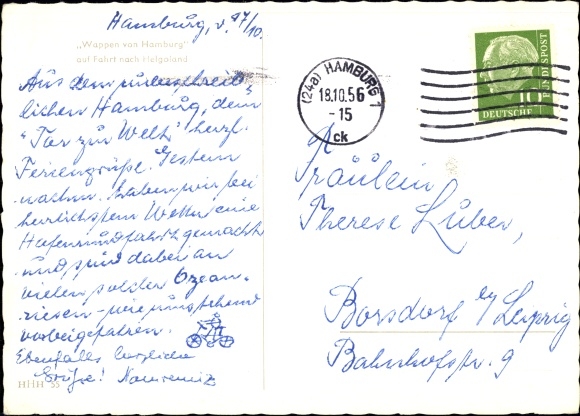 Hamburg, d. 17/10.
„Wappen von Hamburg"
auf Fahrt nach Helgoland
Aus dem unbeschreib-
lichen Hamburg, dem
"Tor zur Welt" herzl.
Feriengrüße. Gestern
nachm. haben wir bei
herrlichstem Wetter eine
Hafenrundfahrt gemacht
und sind dabei an
vielen solcher Ozean-
riesen wie umstehend
vorbeigefahren.
Ebenfalls herzliche
Grüße!
HHH 55
(24a) HAMBURG 1
18.10.56
-15
ck
10
DEUTSCHE
BUNDESPOST
Fräulein
Therese Luber,
Borsdorf b/ Leipzig
Bahnhofstr. 9